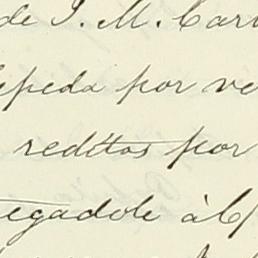 de J. M. Car
epeda por ve
reditos por
egadole à